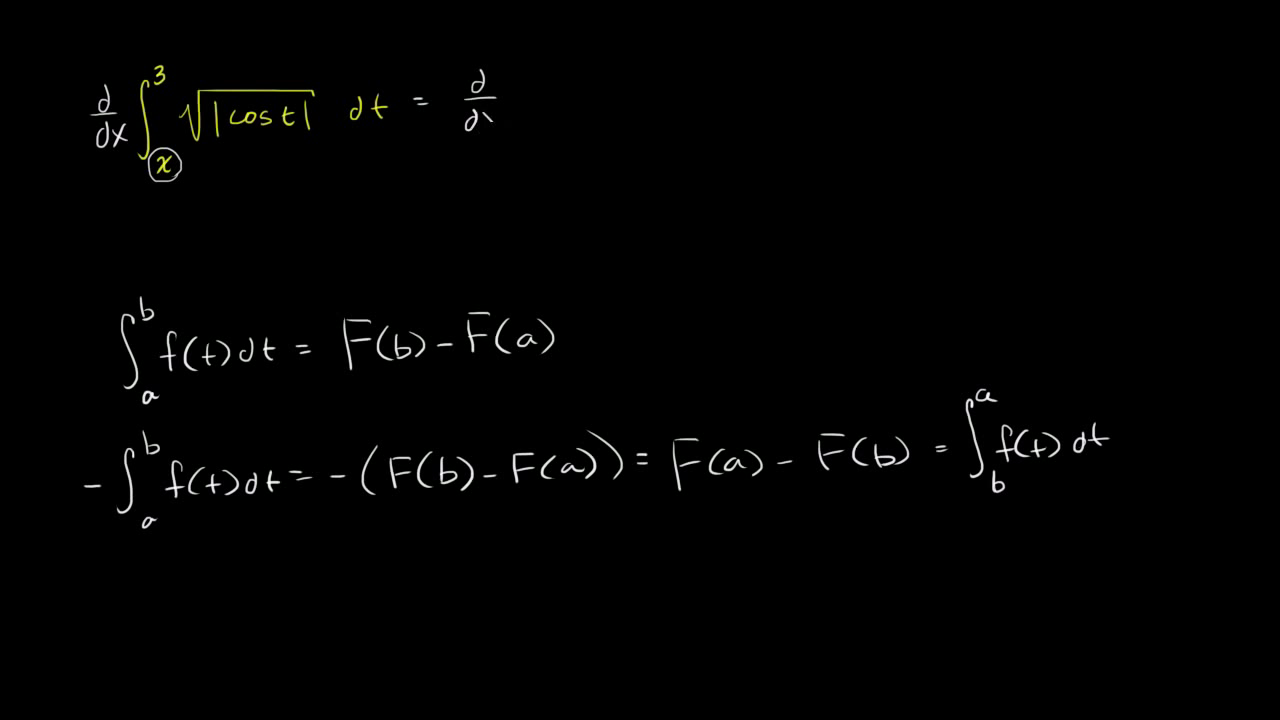 d/dx ∫_x^3 √|cos t| dt = d/dx
∫_a^b f(t)dt = F(b) - F(a)
-∫_a^b f(t)dt = -(F(b) - F(a)) = F(a) - F(b) = ∫_b^a f(t) dt